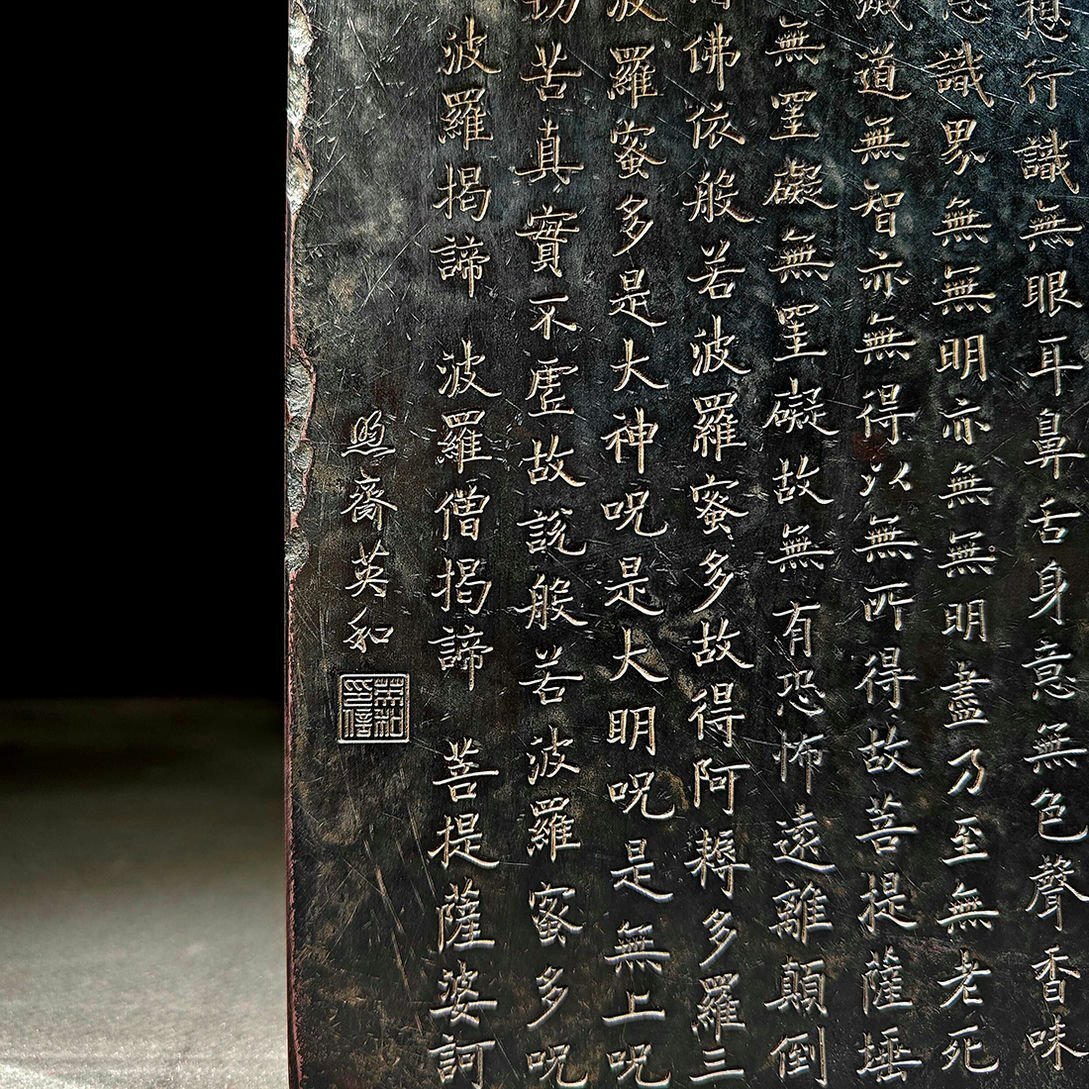 想行識無眼耳鼻舌身意無色聲香味
意識界無無明亦無無明盡乃至無老死
滅道無智亦無得以無所得故菩提薩埵
無罣礙無罣礙故無有恐怖遠離顛倒
佛依般若波羅蜜多故得阿耨多羅三
波羅蜜多是大神呪是大明呪是無上呪
切苦真實不虛故說般若波羅蜜多呪
波羅揭諦 波羅僧揭諦 菩提薩婆訶
煦齋英和
英和印信